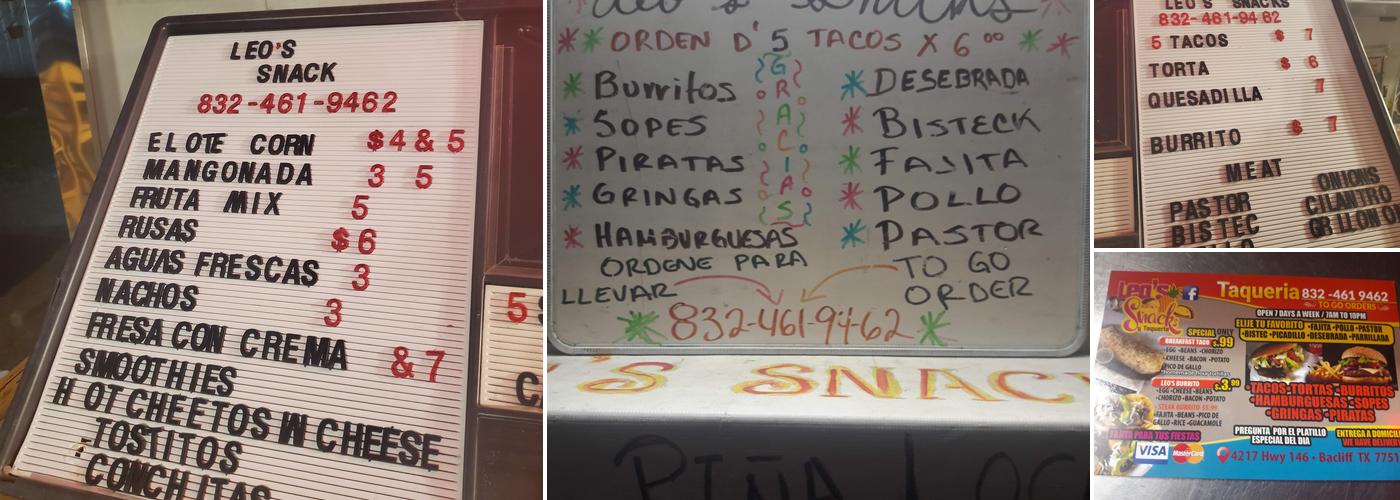 LEO'S
SNACK
832-461-9462
ELOTE CORN $4 & 5
MANGONADA 3 5
FRUTA MIX 5
RUSAS $6
AGUAS FRESCAS 3
NACHOS 3
FRESA CON CREMA & 7
SMOOTHIES
HOT CHEETOS W CHEESE
TOSTITOS
CONCHITAS
5
ORDEN D' 5 TACOS X 6.00
Burritos
SOPES
PIRATAS
GRINGAS
HAMBURGUESAS
GRACIAS
DESEBRADA
BISTECK
FAJITA
POLLO
PASTOR
ORDENE PARA
LLEVAR
TO GO
ORDER
832-461-9462
'S SNAC
PIÑA LOC
LEO'S SNACKS
832-461-9462
5 TACOS $ 7
TORTA $ 6
QUESADILLA 7
BURRITO $ 7
MEAT
PASTOR ONIONS
BISTEC CILANTRO
GRLLON
Leo's
Snack
Taqueria
Taqueria 832-461 9462
TO GO ORDERS
OPEN 7 DAYS A WEEK / 7AM TO 10PM
SPECIAL ONLY
BREAKFAST TACO $.99
•EGG •BEANS •CHORIZO
•CHEESE •BACON •POTATO
•PICO DE GALLO
LEO'S BURRITO $3.99
•EGG •CHEESE •BEANS
•CHORIZO •BACON •POTATO
STEAK BURRITO $5.99
•FAJITA •BEANS •PICO DE
GALLO •RICE •GUACAMOLE
ELIJE TU FAVORITO •FAJITA •POLLO •PASTOR
•BISTEC •PICADILLO •DESEBRADA •PARRILLADA
•TACOS•TORTAS•BURRITOS
•HAMBURGUESAS•SOPES
•GRINGAS•PIRATAS
PARA TUS FIESTAS
VISA MasterCard
PREGUNTA POR EL PLATILLO
ESPECIAL DEL DIA
ENTREGA A DOMICILI
WE HAVE DELIVERY
4217 Hwy 146 • Bacliff TX 7751